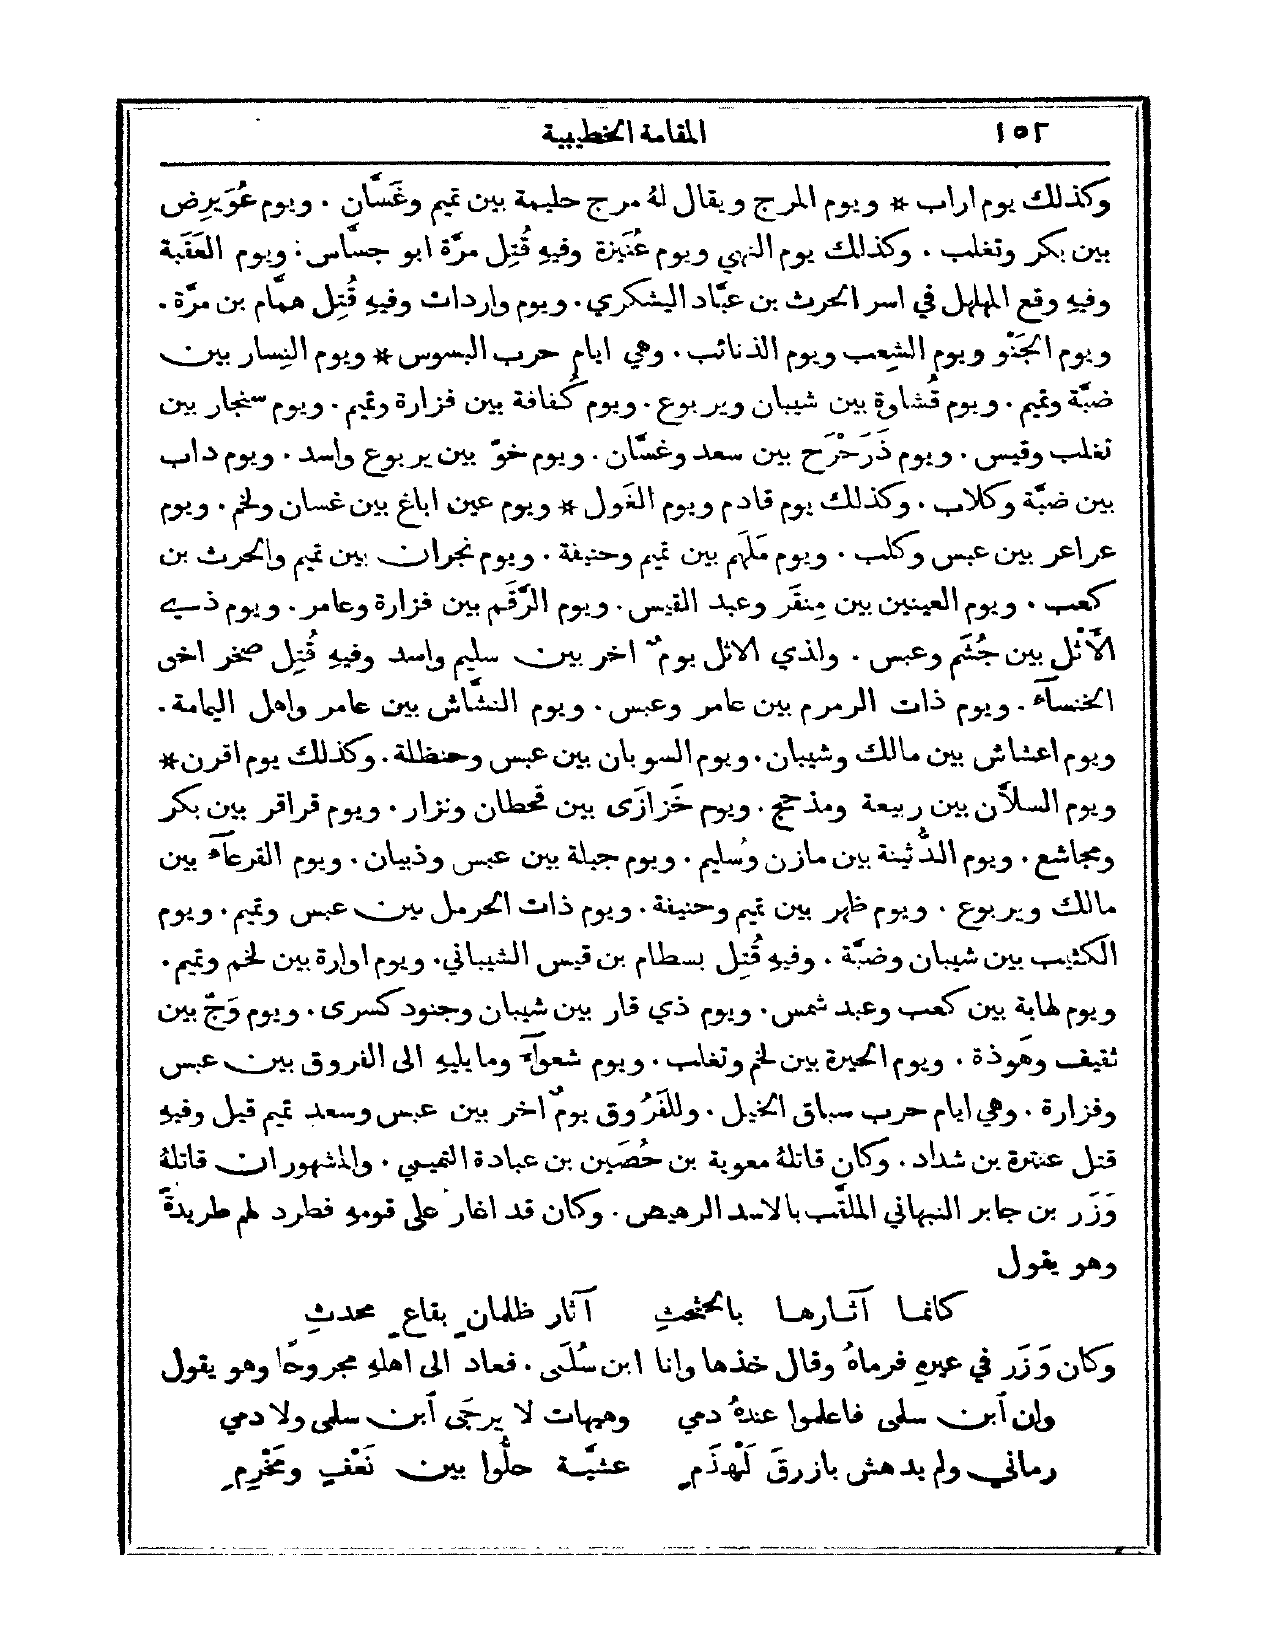 ١٥٢ المقامة الخطيبية
وكذلك يوم اراب * ويوم المرج ويقال لهُ مرج حليمة بين تميم وغَسَّان . ويوم عُوَيرِض
بين بكر وتغلب . وكذلك يوم النهي ويوم عُنَيزة وفيهِ قُتِل مرَّة ابو جسَّاس : ويوم العَقَبة
وفيهِ وقع المهلهل في اسر الحرث بن عبَّاد اليشكري . ويوم واردات وفيهِ قُتِل همَّام بن مرَّة .
ويوم الحِنْو ويوم الشِعب ويوم الذنائب . وهي ايام حرب البسوس * ويوم النِسار بين
ضبَّة وتميم . ويوم قُشاوة بين شيبان ويربوع . ويوم كُفافة بين فزارة وتميم . ويوم سنجار بين
تغلب وقيس . ويوم ذَرَحْرَح بين سعد وغسَّان . ويوم خوّ بين يربوع واسد . ويوم داب
بين ضبَّة وكلاب . وكذلك يوم قادم ويوم الغَول * ويوم عين اباغ بين غسان ولخم . ويوم
عراعر بين عبس وكلب . ويوم مَلهم بين تميم وحنيفة . ويوم نجران بين تميم والحرث بن
كعب . ويوم العينين بين مِنقَر وعبد القيس . ويوم الرَّقَم بين فزارة وعامر . ويوم ذي
الأَثْل بين جُشَم وعبس . ولذي الاثل يومٌ اخر بين سليم واسد وفيهِ قُتِل صخر اخو
الخنسآء . ويوم ذات الرمرم بين عامر وعبس . ويوم النشَّاش بين عامر واهل اليمامة .
ويوم اعشاش بين مالك وشيبان . ويوم السوبان بين عبس وحنظلة . وكذلك يوم اقرن *
ويوم السلاَّن بين ربيعة ومذحج . ويوم خَزازَى بين قحطان ونزار . ويوم قراقر بين بكر
ومجاشع . ويوم الدُّثينة بين مازن وسُليم . ويوم جبلة بين عبس وذبيان . ويوم القرعآء بين
مالك ويربوع . ويوم ظهر بين تميم وحنيفة . ويوم ذات الحرمل بين عبس وتميم . ويوم
الكثيب بين شيبان وضبَّة . وفيهِ قُتِل بسطام بن قيس الشيباني . ويوم اوارة بين لخم وتميم .
ويوم لهابة بين كعب وعبد شمس . ويوم ذي قار بين شيبان وجنود كسرى . ويوم وَجّ بين
ثقيف وهَوذة . ويوم الحيرة بين لخم وتغلب . ويوم شعوآء وما يليهِ الى الفروق بين عبس
وفزارة . وهي ايام حرب سباق الخيل . وللفَرُوق يومٌ اخر بين عبس وسعد تميم قيل وفيهِ
قتل عنترة بن شداد . وكان قاتلهُ معوية بن حُصَين بن عبادة التميمي . والمشهور ان قاتلهُ
وَزَر بن جابر النبهاني الملقَّب بالاسد الرهيص . وكان قد اغار على قومهِ فطرد لهم طريدةً
وهو يقول
كانما آثارها بالحثحثِ آثار ظلمانٍ بقاعٍ محدثِ
وكان وَزَر في عيرهِ فرماهُ وقال خذها وانا ابن سُلَمى . فعاد الى اهلهِ مجروحًا وهو يقول
وان أبن سلمى فاعلموا عندهُ دمي وهيهات لا يرجَى أبن سلمى ولا دمي
رماني ولم يدهش بازرقَ لَهْذَمٍ عشيَّة حلُّوا بين نَعْفٍ ومَخْرِمٍ